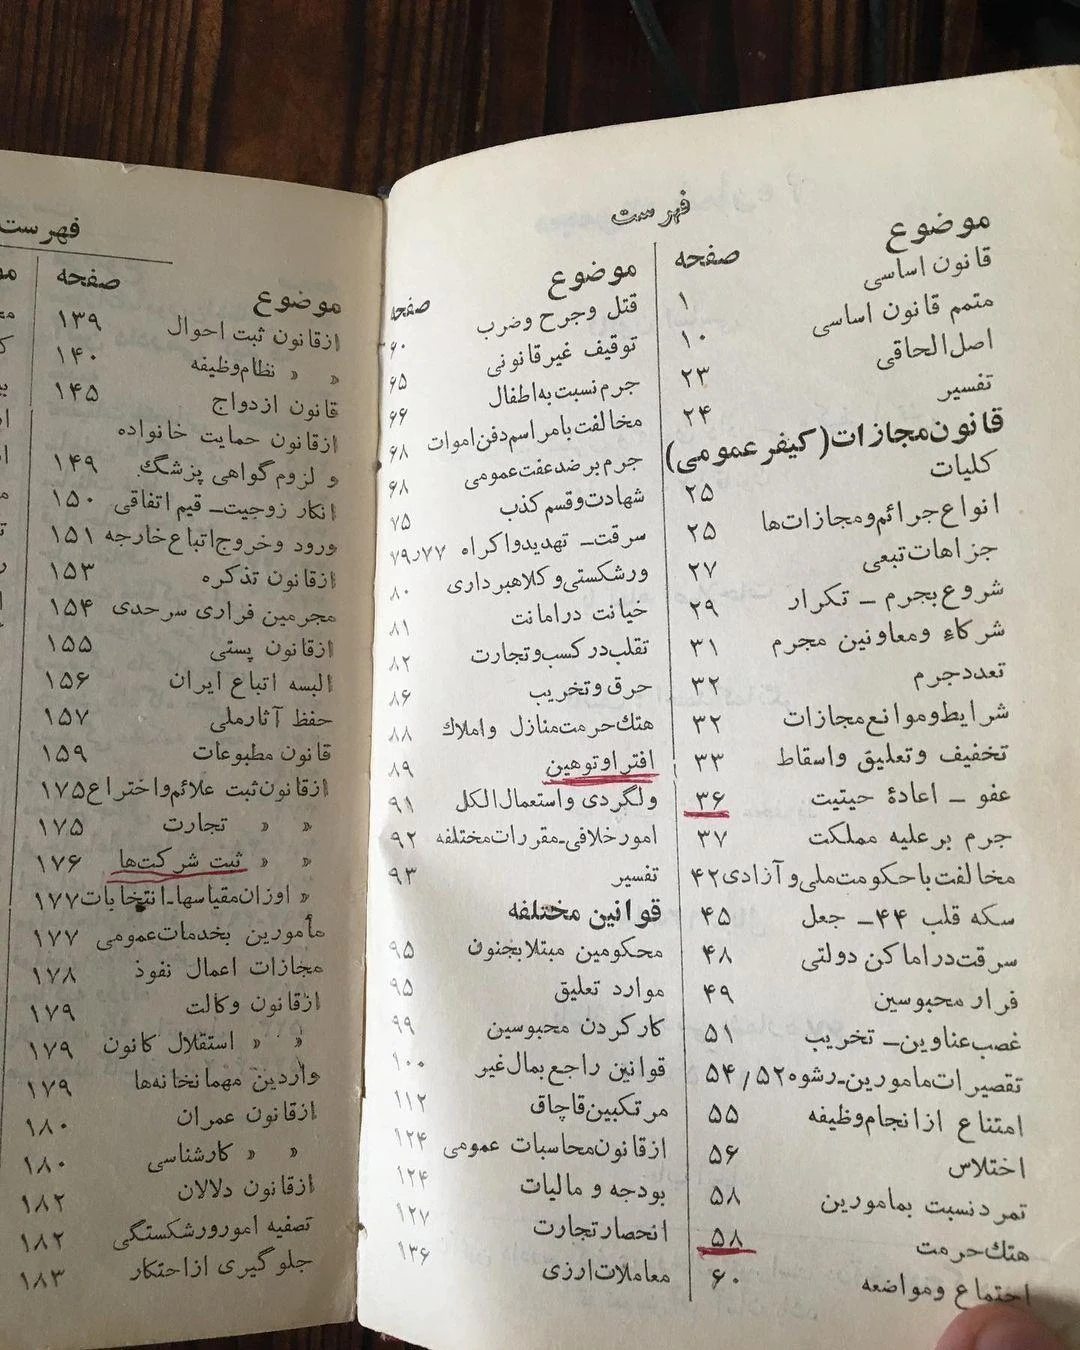 فهرست
موضوع صفحه
قانون اساسی ۱
متمم قانون اساسی ۱۰
اصل الحاقی ۲۳
تفسیر ۲۴
قانون مجازات (کیفر عمومی)
کلیات ۲۵
انواع جرائم و مجازات‌ها ۲۵
جزاهات تبعی ۲۷
شروع بجرم ـ تکرار ۲۹
شرکاء و معاونین مجرم ۳۱
تعدد جرم ۳۲
شرایط و موانع مجازات ۳۲
تخفیف و تعلیق و اسقاط ۳۳
عفو ـ اعادهٔ حیثیت ۳۶
جرم بر علیه مملکت ۳۷
مخالفت با حکومت ملی و آزادی ۴۲
سکه قلب ۴۴ ـ جعل ۴۵
سرقت در اماکن دولتی ۴۸
فرار محبوسین ۴۹
غصب عناوین ـ تخریب ۵۱
تقصیرات مامورین ـ رشوه ۵۲ / ۵۴
امتناع از انجام وظیفه ۵۵
اختلاس ۵۶
تمرد نسبت بمامورین ۵۸
هتك حرمت ۵۸
اجتماع و مواضعه ۶۰
موضوع صفحه
قتل و جرح و ضرب ۶۰
توقیف غیر قانونی ۶۵
جرم نسبت به اطفال ۶۶
مخالفت با مراسم دفن اموات ۶۸
جرم بر ضد عفت عمومی ۶۸
شهادت و قسم کذب ۷۵
سرقت ـ تهدید و اکراه ۷۷ر۷۹
ورشکستی و کلاهبرداری ۸۰
خیانت در امانت ۸۱
تقلب در کسب و تجارت ۸۲
حرق و تخریب ۸۶
هتك حرمت منازل و املاك ۸۸
افترا و توهین ۸۹
ولگردی و استعمال الکل ۹۱
امور خلافی ـ مقررات مختلفه ۹۲
تفسیر ۹۳
قوانین مختلفه
محکومین مبتلا بجنون ۹۵
موارد تعلیق ۹۵
کار کردن محبوسین ۹۹
قوانین راجع بمال غیر ۱۰۰
مرتکبین قاچاق ۱۱۲
از قانون محاسبات عمومی ۱۲۴
بودجه و مالیات ۱۲۴
انحصار تجارت ۱۲۷
معاملات ارزی ۱۳۶
فهرست
موضوع صفحه
از قانون ثبت احوال ۱۳۹
« « نظام وظیفه ۱۴۰
قانون ازدواج ۱۴۵
از قانون حمایت خانواده
و لزوم گواهی پزشگ ۱۴۹
انکار زوجیت ـ قیم اتفاقی ۱۵۰
ورود و خروج اتباع خارجه ۱۵۱
از قانون تذکره ۱۵۳
مجرمین فراری سرحدی ۱۵۴
از قانون پستی ۱۵۵
البسه اتباع ایران ۱۵۶
حفظ آثار ملی ۱۵۷
قانون مطبوعات ۱۵۹
از قانون ثبت علائم و اختراع ۱۷۵
« « تجارت ۱۷۵
« « ثبت شرکت‌ها ۱۷۶
« اوزان مقیاسها ـ انتخابات ۱۷۷
مأمورین بخدمات عمومی ۱۷۷
مجازات اعمال نفوذ ۱۷۸
از قانون وکالت ۱۷۹
« « استقلال کانون ۱۷۹
واردین مهمانخانه‌ها ۱۷۹
از قانون عمران ۱۸۰
« « کارشناسی ۱۸۰
از قانون دلالان ۱۸۲
تصفیه امور ورشکستگی ۱۸۲
جلو گیری از احتکار ۱۸۳